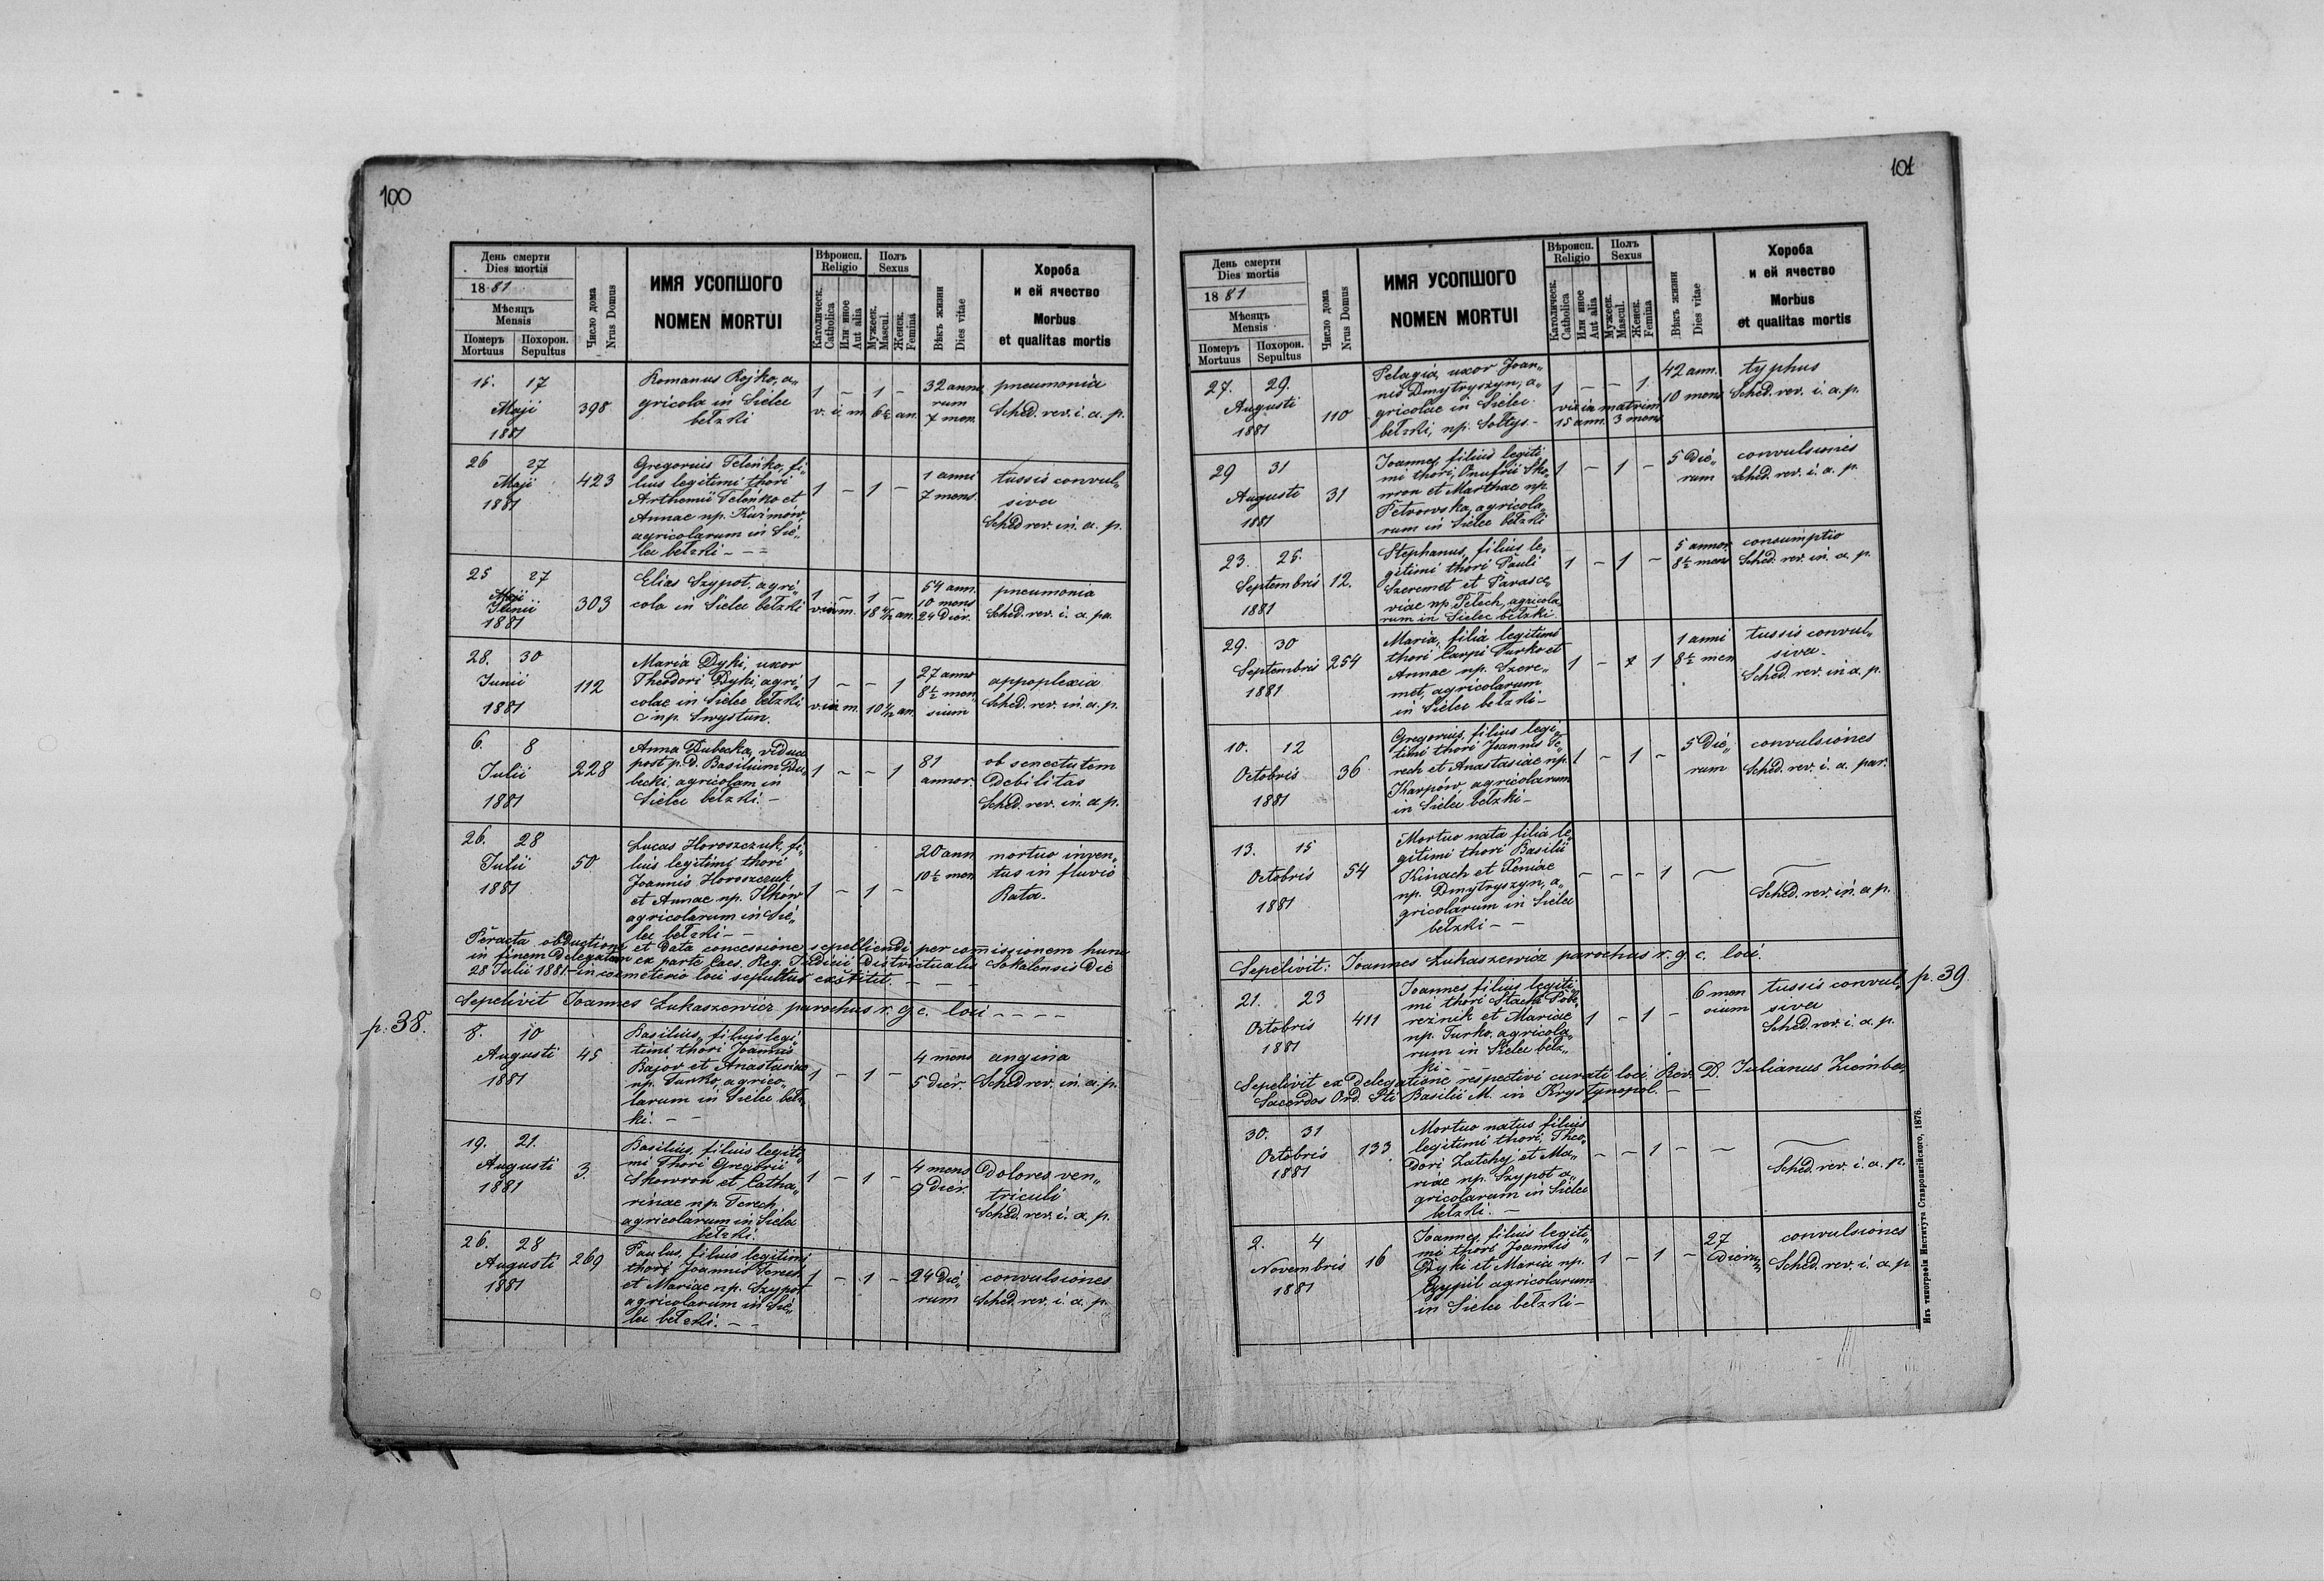 100
День смерти
Dies mortis
1881
Мѣсяцъ
Mensis
Померъ
Mortuus
Похорон.
Sepultus
Число дома
Nrus Domus
ИМЯ УСОПШОГО
NOMEN MORTUI
Вѣроисп.
Religio
Католическ.
Catholica
Или иное
Aut alia
Полъ
Sexus
Мужеск.
Mascul.
Женск.
Femina
Вѣкъ жизни
Dies vitae
Хороба
и ей ячество
Morbus
et qualitas mortis
15. 17
Maji
1881
398
Romanus Rojko, a„
gricola in Sielec
bełzki
1 – 1 –
v. i. m. 6½ an.
32 anno
rum
7 men.
pneumonia
Sched. rev. i. a. p.
26 27
Maji
1881
423
Gregorius Teleńko, fi„
lius legitimi thori
Arthemii Teleńko et
Annae np. Kuźmów,
agricolarum in Sie„
lec bełzki – – =
1 – 1 –
1 anni
7 mens.
tussis convul„
siva
Sched rev. in. a. p.
25 27
Junii
1881
303
Elias Szypot, agri„
cola in Sielec bełzki
1 – 1 –
vixit m. 18 4/12 an.
54 ann.
10 mens
24 dier.
pneumonia
Sched. rev. i. a. pa.
28. 30
Junii
1881
112
Maria Dyki, uxor
Theodori Dyki, agri„
colae in Sielec bełzki
np. Swystun.
1 – – 1
vixit m. 10 4/12 an.
27 anno
8½ men
sium
appoplexia
Sched. rev. in. a. p.
6. 8
Julii
1881
228
Anna Dubecka, vidua
post p. d. Basilium Du„
becki, agricolam in
Sielec bełzki. –
1 – – 1
81
annor.
ob senectutem
debilitas
Sched. rev. in. a. p.
26. 28
Julii
1881
50
Lucas Horoszczuk, fi„
lius legitimi thori
Joannis Horoszczuk
et Annae np. Ilków
agricolarum in Sie„
lec bełzki – –
1 – 1 –
20 ann
10½ men
mortuo inven„
tus in fluvio
Rata.
Peracta obductione et data concessione sepelliendi per comissionem hunc
in finem delegatam ex parte Caes. Reg. Judicii Districtualis Sokalensis die
28 Julii 1881 in caemeterio loci sepultus exstitit. – – –
Sepelivit Joannes Łukaszewicz parochus r. g. c. loci – – – –
p: 38.
8. 10
Augusti
1881
45
Basilius, filius legi„
timi thori Joannis
Bajor et Anastasiae
np. Turko, agrico„
larum in Sielec bełz„
ki. – –
1 – 1 –
4 mens
5 dier.
angina
Sched rev. in. a. p.
19. 21.
Augusti
1881
3.
Basilius, filius legiti„
mi thori Gregorii
Skowron et Catha„
rinae np. Terech,
agricolarum in Sielec
bełzki.
1 – 1 –
4 mens
9 dier.
Dolores ven„
triculi
Sched. rev. i. a. p.
26. 28
Augusti
1881
269
Paulus, filius legitimi
thori Joannis Terech
et Mariae np. Szypot
agricolarum in Sie„
lec bełzki. – –
1 – 1 –
24 die„
rum
convulsiones
Sched. rev. i. a. p.
101
День смерти
Dies mortis
1881
Мѣсяцъ
Mensis
Померъ
Mortuus
Похорон.
Sepultus
Число дома
Nrus Domus
ИМЯ УСОПШОГО
NOMEN MORTUI
Вѣроисп.
Religio
Католическ.
Catholica
Или иное
Aut alia
Полъ
Sexus
Мужеск.
Mascul.
Женск.
Femina
Вѣкъ жизни
Dies vitae
Хороба
и ей ячество
Morbus
et qualitas mortis
27. 29.
Augusti
1881
110
Pelagia, uxor Joan„
nis Dmytryszyn, a„
gricolae in Sielec
bełzki, np. Sołtys –
1 – – 1.
vixit in matrim.
15 ann. 3 mens
42 ann.
10 mens
typhus
Sched. rev. i. a. p.
29 31
Augusti
1881
31
Joannes, filius legiti
mi thori, Onufrii Sko„
wron et Marthae np.
Petrowska, agricola„
rum in Sielec bełzki
1 – 1 –
5 die„
rum
convulsiones
Sched. rev. i. a. p.
23. 25.
Septembris
1881
12.
Stephanus, filius le„
gitimi thori Pauli
Szeremet et Parasce„
viae np. Pelech, agricola„
rum in Sielec bełzki.
1 – 1 –
5 annor.
8½ mens
consumptio
Sched. rev. in. a. p.
29. 30
Septembris
1881
254
Maria, filia legitimi
thori Carpi Turko et
Annae np. Szere„
met, agricolarum
in Sielec bełzki –
1 – 1
1 anni
8½ men
tussis convul„
siva –
Sched. rev. in a. p.
10. 12
Octobris
1881
36
Gregorius, filius legi„
timi thori Joannis Te„
rech et Anastasiae np.
Karpów, agricolarum
in Sielec bełzki –
1 – 1 –
5 die„
rum
convulsiones
Sched. rev. i. a. par.
13. 15
Octobris
1881
54
Mortuo nata filia le„
gitimi thori Basilii
Kinach et Xeniae
np. Dmytryszyn, a„
gricolarum in Sielec
bełzki – –
– – – 1
Sched. rev. in. a. p.
Sepelivit: Joannes Łukaszewicz parochus r. g. c. loci.
p. 39
21. 23
Octobris
1881
411
Joannes, filius legiti„
mi thori Stachi Pobe„
reźnik et Mariae
np. Turko, agricola„
rum in Sielec bełz„
ki –
1 – 1 –
6 men
sium
tussis convul„
siva
Sched. rev. i. a. p.
Sepelivit ex delegatione respectivi curati loci Rev. D. Julianus Ziemba
Sacerdos Ord. Sti Basilii M. in Krystynopol. – –
30. 31
Octobris
1881
133
Mortuo natus filius
legitimi thori, Theo„
dori Zatchej et Ma„
riae np. Szypot a„
gricolarum in Sielec
bełzki. –
– – 1 – –
Sched. rev. i. a. p.
2. 4
Novembris
1881
16
Joannes, filius legiti„
mi thori Joannis
Dyki et Maria np.
agricolarum
in Sielec bełzki –
1 – 1 –
27
dieru„
convulsiones
Sched. rev. i. a. p
Изъ типографіи Института Ставропигійского, 1876.